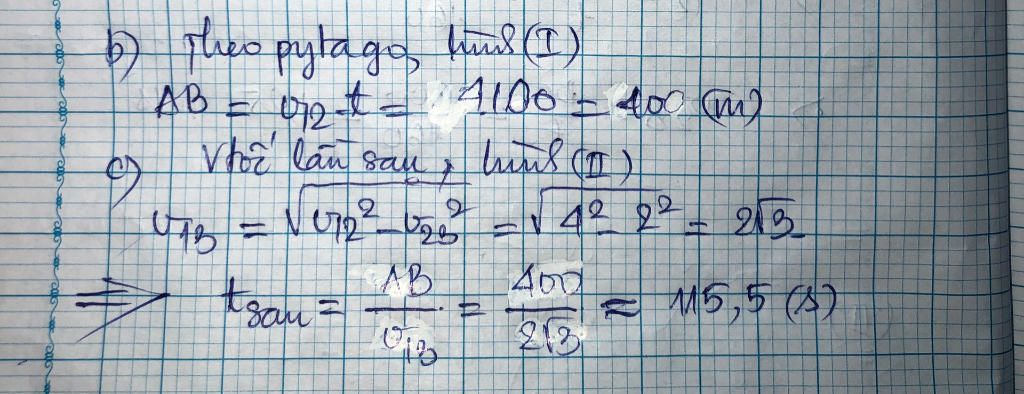 b) Theo pytago, hình (I)
AB = v12.t = 4.100 = 400 (m)
c) Vtốc lần sau, hình (II)
v13 = √(v12² - v23²) = √(4² - 2²) = 2√3
⇒ tsau = AB/v13 = 400/2√3 ≈ 115,5 (s)